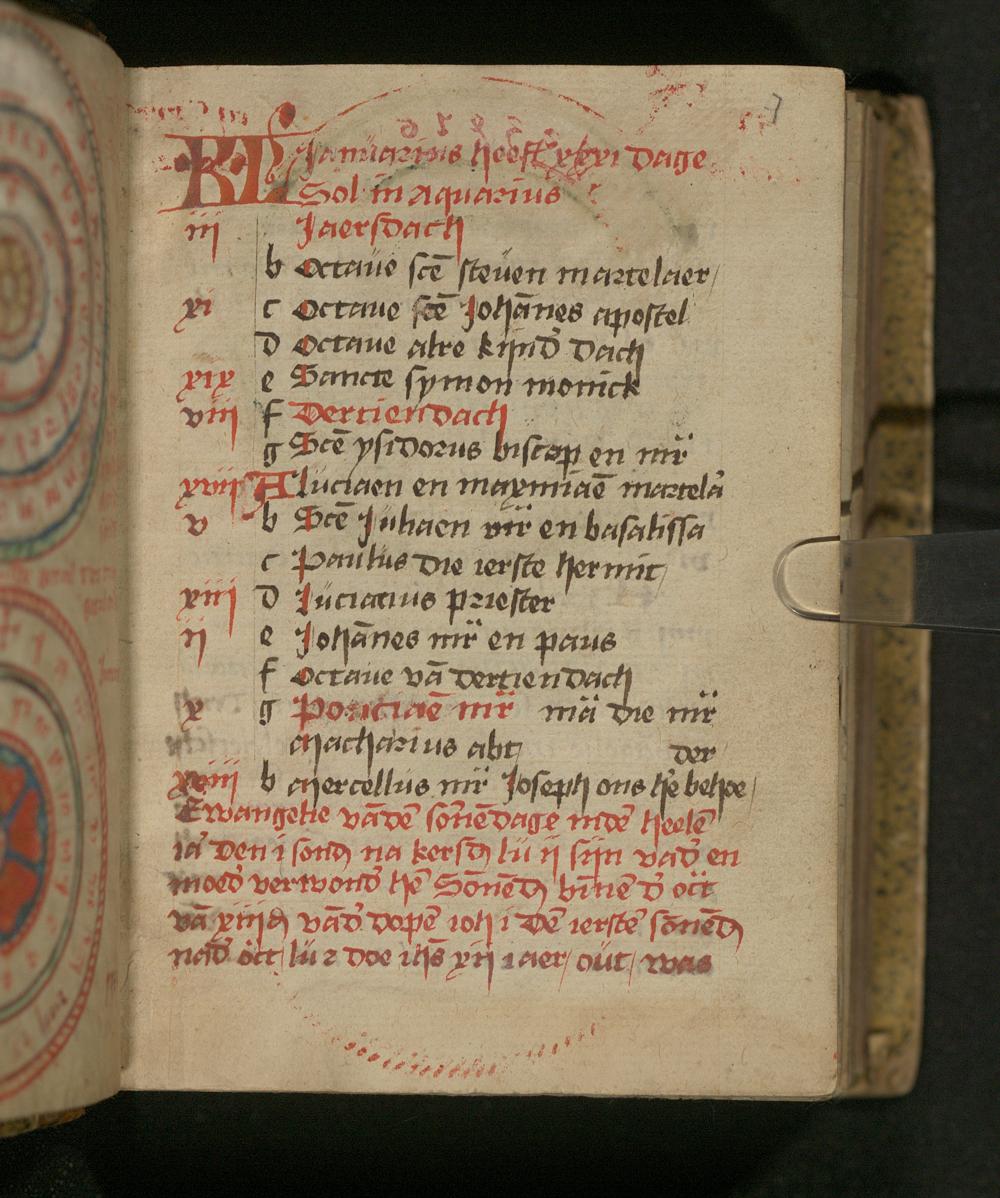 KL Januarius heeft xxxi dage
Sol in aquarius
iii Jaersdach
b Octave scē steven martelaer
xi c Octave scē Johānes apostel
D Octave alre kijnd̛ dach
xix e Sancte symon monick
viii f Dertiendach
g Scē ysidorus biscop en mr̄
xvii A luciaen en maxmiaē martela
v b Scē Juliaen mr̄ en basalissa
c Paulus die ierste hermit
xiii D Luciaius priester
ii e Johānes mr̄ en paus
f Octave vā dertiendach
x g Ponciaē mr̄ mā die mr̄
Macharius abt der
xviii b Mercellus mr̄ Joseph ons hē behoe
Ewangelie vādē sōnēdage indē heelē
ia den i sond na kersd lu ii sijn vad̛ en
moed̛ verwond̛ hē Sōnēd bīnē d̛ oct
vā xiiid vād̛ dopē ioh i Dē ierstē sōnēd
nad̛ oct lu 2 doe ihs xii iaer out was